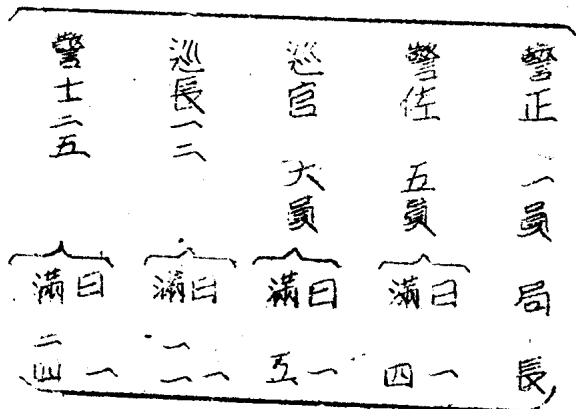 警正 一員 局長
警佐 五員 日一 満四
巡官 大員 日一 満五
巡長一二 日一 満一一
警士二五 日一 満二四